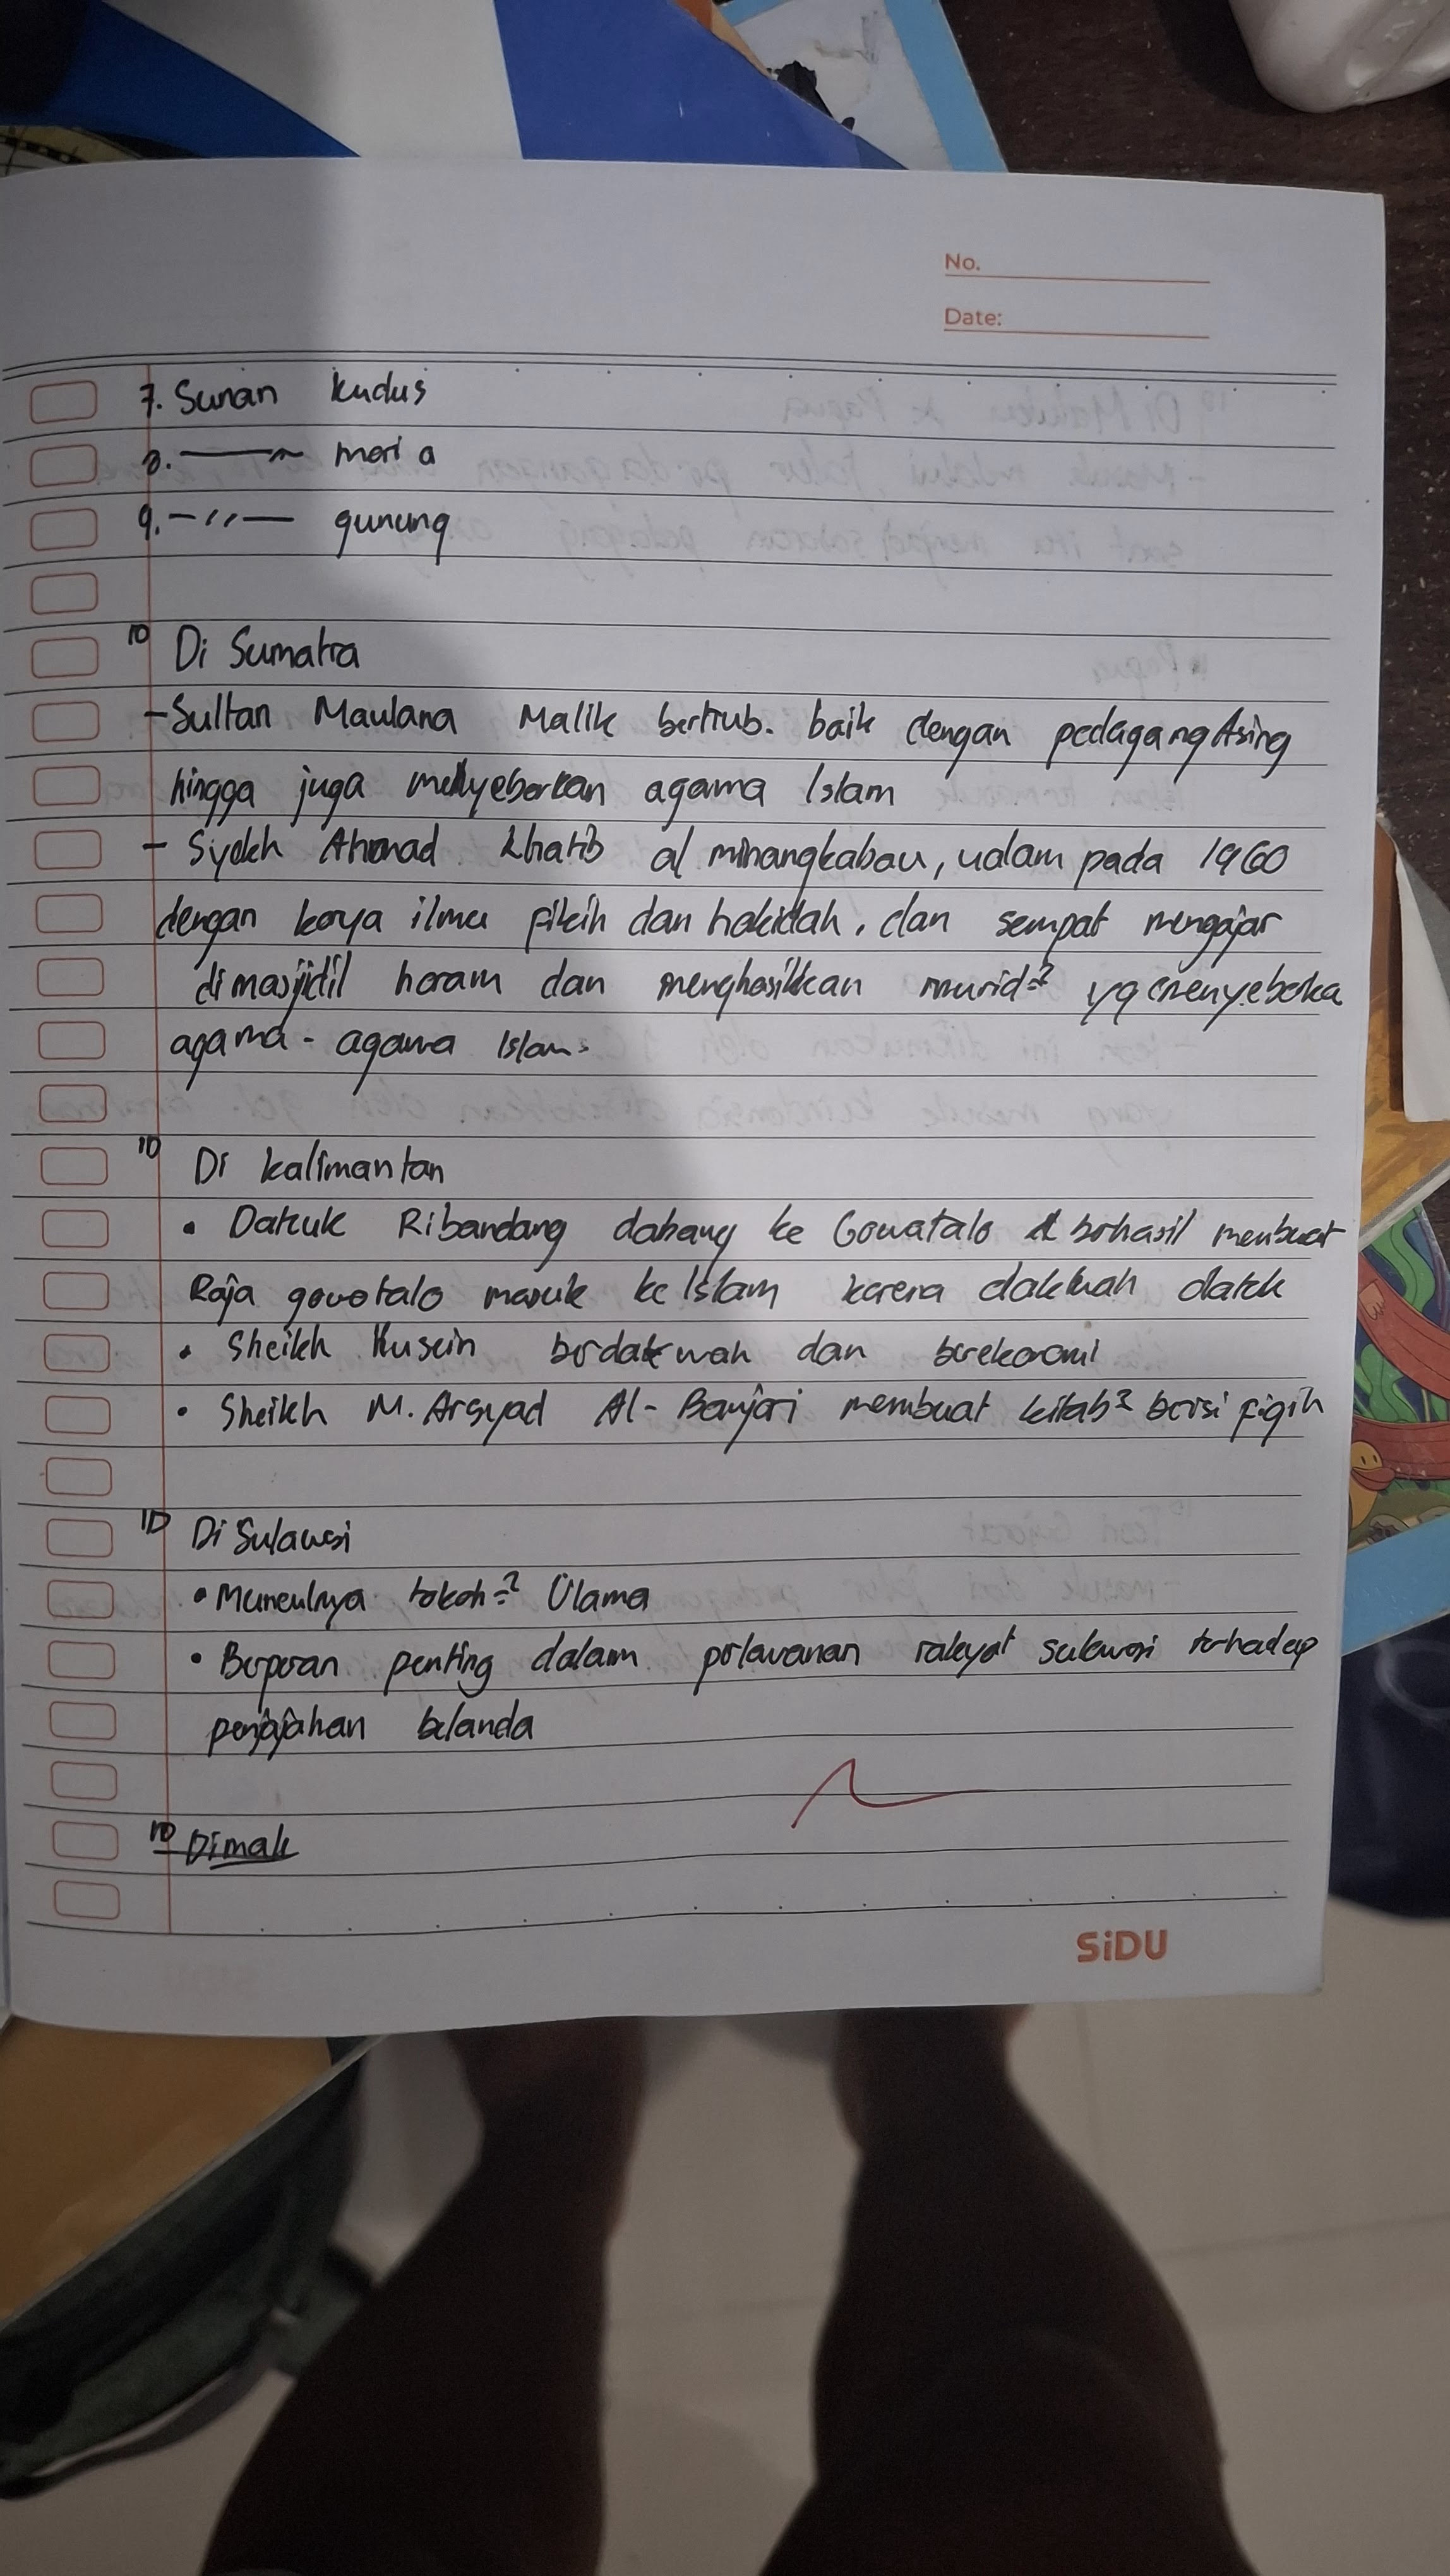 No.
Date:
7. Sunan kudus
8. —— moria
9. —〃— gunung
Di Sumatra
- Sultan Maulana Malik berhub. baik dengan pedagang Asing
hingga juga menyebarkan agama Islam
- Syekh Ahmad Khatib al minangkabau, ualam pada 1960
dengan karya ilmu fikih dan hakidah. dan sempat mengajar
di masjidil haram dan menghasilkan murid² yg menyebarka
agama - agama Islam.
Di kalimantan
• Datuk Ribandang datang ke Gowatalo & berhasil membuat
Raja gowotalo masuk ke Islam karena dakwah datuk
• Sheikh Husein berdakwah dan berekonomi
• Sheikh M. Arsyad Al-Banjari membuat kitab² berisi fiqih
Di Sulawesi
• Munculnya tokoh² Ulama
• Berperan penting dalam perlawanan rakyat sulawesi terhadap
penjajahan belanda
Dimalu
SiDU